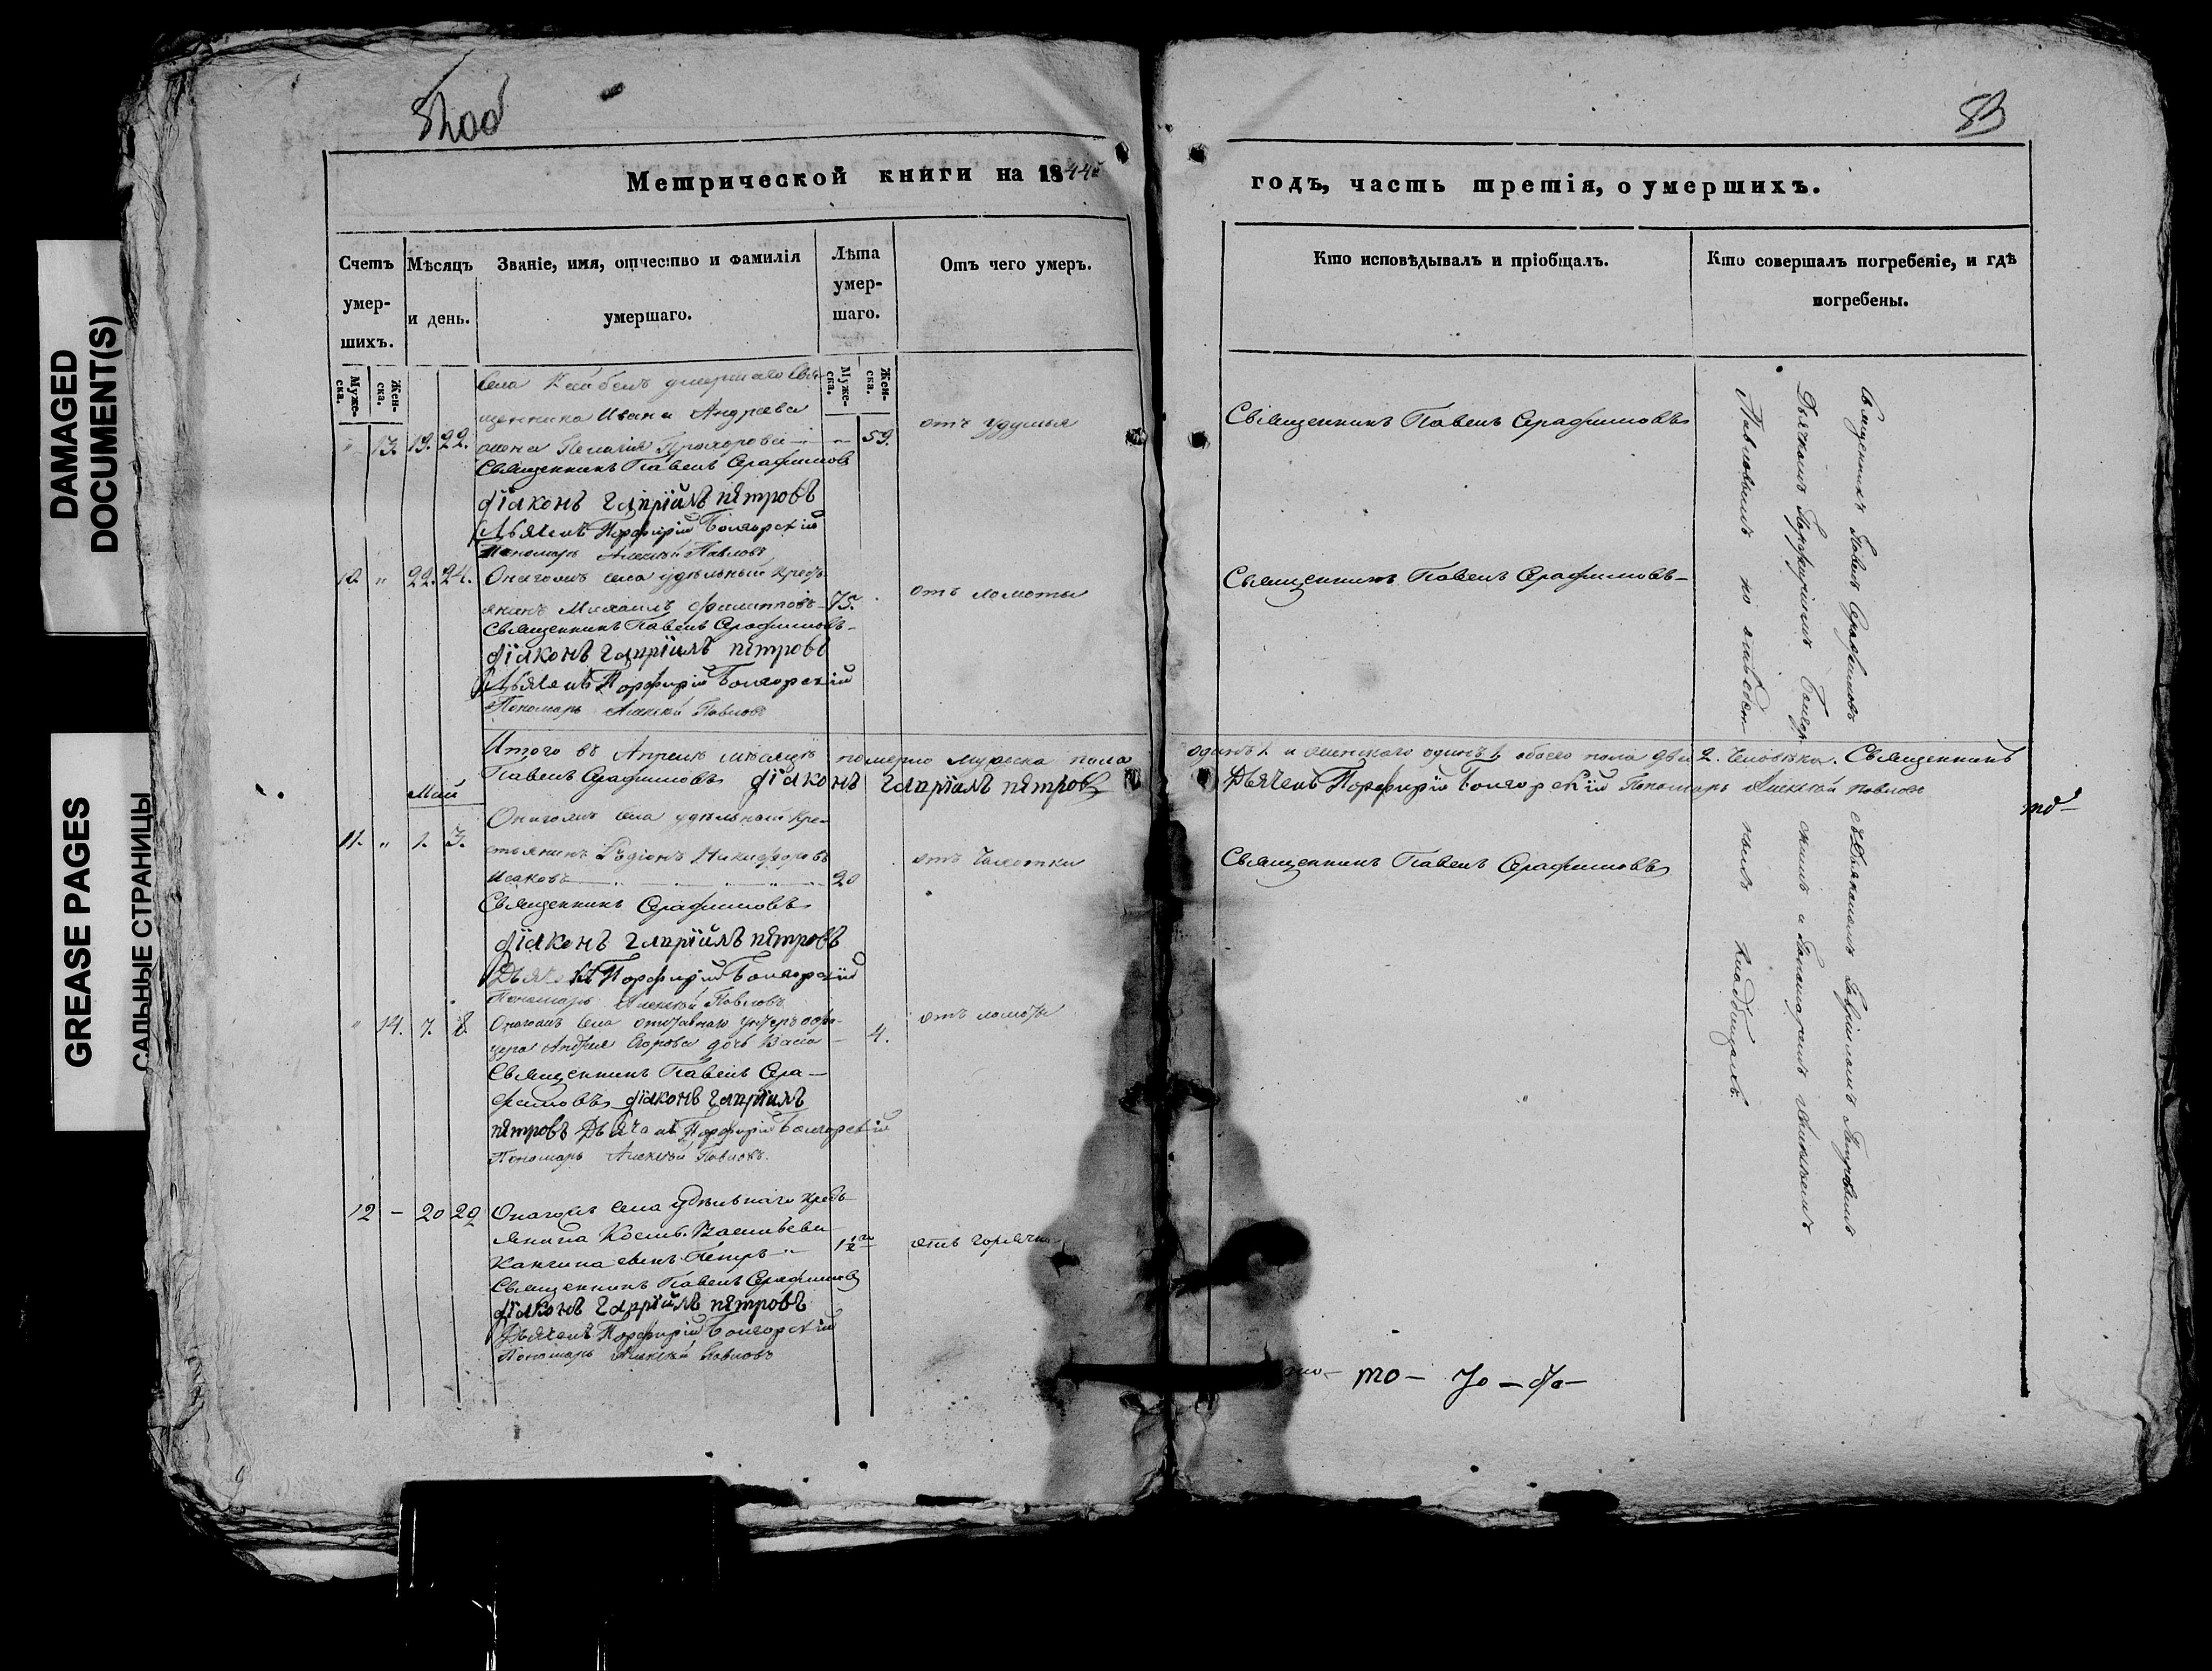 DAMAGED
DOCUMENT(S)
GREASE PAGES
САЛЬНЫЕ СТРАНИЦЫ
Метрической книги на 1844й
Счетъ умер-
шихъ.
Мѣсяцъ
и день.
Званіе, имя, отчество и фамилія
умершаго.
Лѣта
умер-
шаго.
Отъ чего умеръ.
Муже-
ска.
Жен-
ска.
Муже-
ска.
Жен-
ска.
Села умершаго Свя-
щенника Ивана Андреева
" 13. 19. 22. жена Пелагія Прохорова 59. отъ удушья
Священникъ Павелъ Серафимовъ
діаконъ гавріилъ петровъ
Дьячекъ Порфирій Болгорскій
Пономарь Алексѣй Павловъ
10 " 22. 24. Онагожъ села удѣльный крест-
янинъ Михаилъ Филипповъ 75. отъ ломоты
Священникъ Павелъ Серафимовъ
діаконъ гавріилъ петровъ
Дьячекъ Порфирій Болгорскій
Пономарь Алексѣй Павловъ
Итого въ Апрелѣ мѣсяцѣ померло мужеска пола
Павелъ Серафимовъ діаконъ гавріилъ петровъ
Май
11. " 1. 3. Онагожъ села удѣльный кре-
стьянинъ Родіонъ Никифоровъ
Исаковъ 20 отъ чахотки
Священникъ Серафимовъ
діаконъ гавріилъ петровъ
Дьячекъ Порфирій Болгорскій
Пономарь Алексѣй Павловъ
" 14. 7. 8. Онагожъ села отставнаго унтеръ офи-
цера Андрея Егорова дочь 4. отъ ломоты
Священникъ Павелъ Сера-
фимовъ діаконъ гавріилъ
петровъ Дьячекъ Порфирій Болгорскій
Пономарь Алексѣй Павловъ.
12 - 20 22 Онагожъ села удѣльнаго крест-
янина Васильева
сынъ Петръ 1½ отъ горячки
Священникъ Павелъ Серафимовъ
діаконъ гавріилъ петровъ
Дьячекъ Порфирій Болгорскій
Пономарь Алексѣй Павловъ
годъ, часть третія, о умершихъ.
Кто исповѣдывалъ и пріобщалъ.
Кто совершалъ погребеніе, и гдѣ
погребены.
Священникъ Павелъ Серафимовъ
Священникъ Павелъ Серафимовъ
одинъ 1 и женскаго одинъ 1 обоего пола два 2. человѣка. Священникъ
Дьячекъ Порфирій Болгорскій Пономарь Алексѣй Павловъ
Священникъ Павелъ Серафимовъ
Священникъ Павелъ Серафимовъ съ Діакономъ Гавріиломъ Петровымъ
Дьячкомъ Порфиріемъ Болгор-
скимъ и Пономаремъ Алексѣемъ
Павловымъ на кладбищахъ.
то-
то-